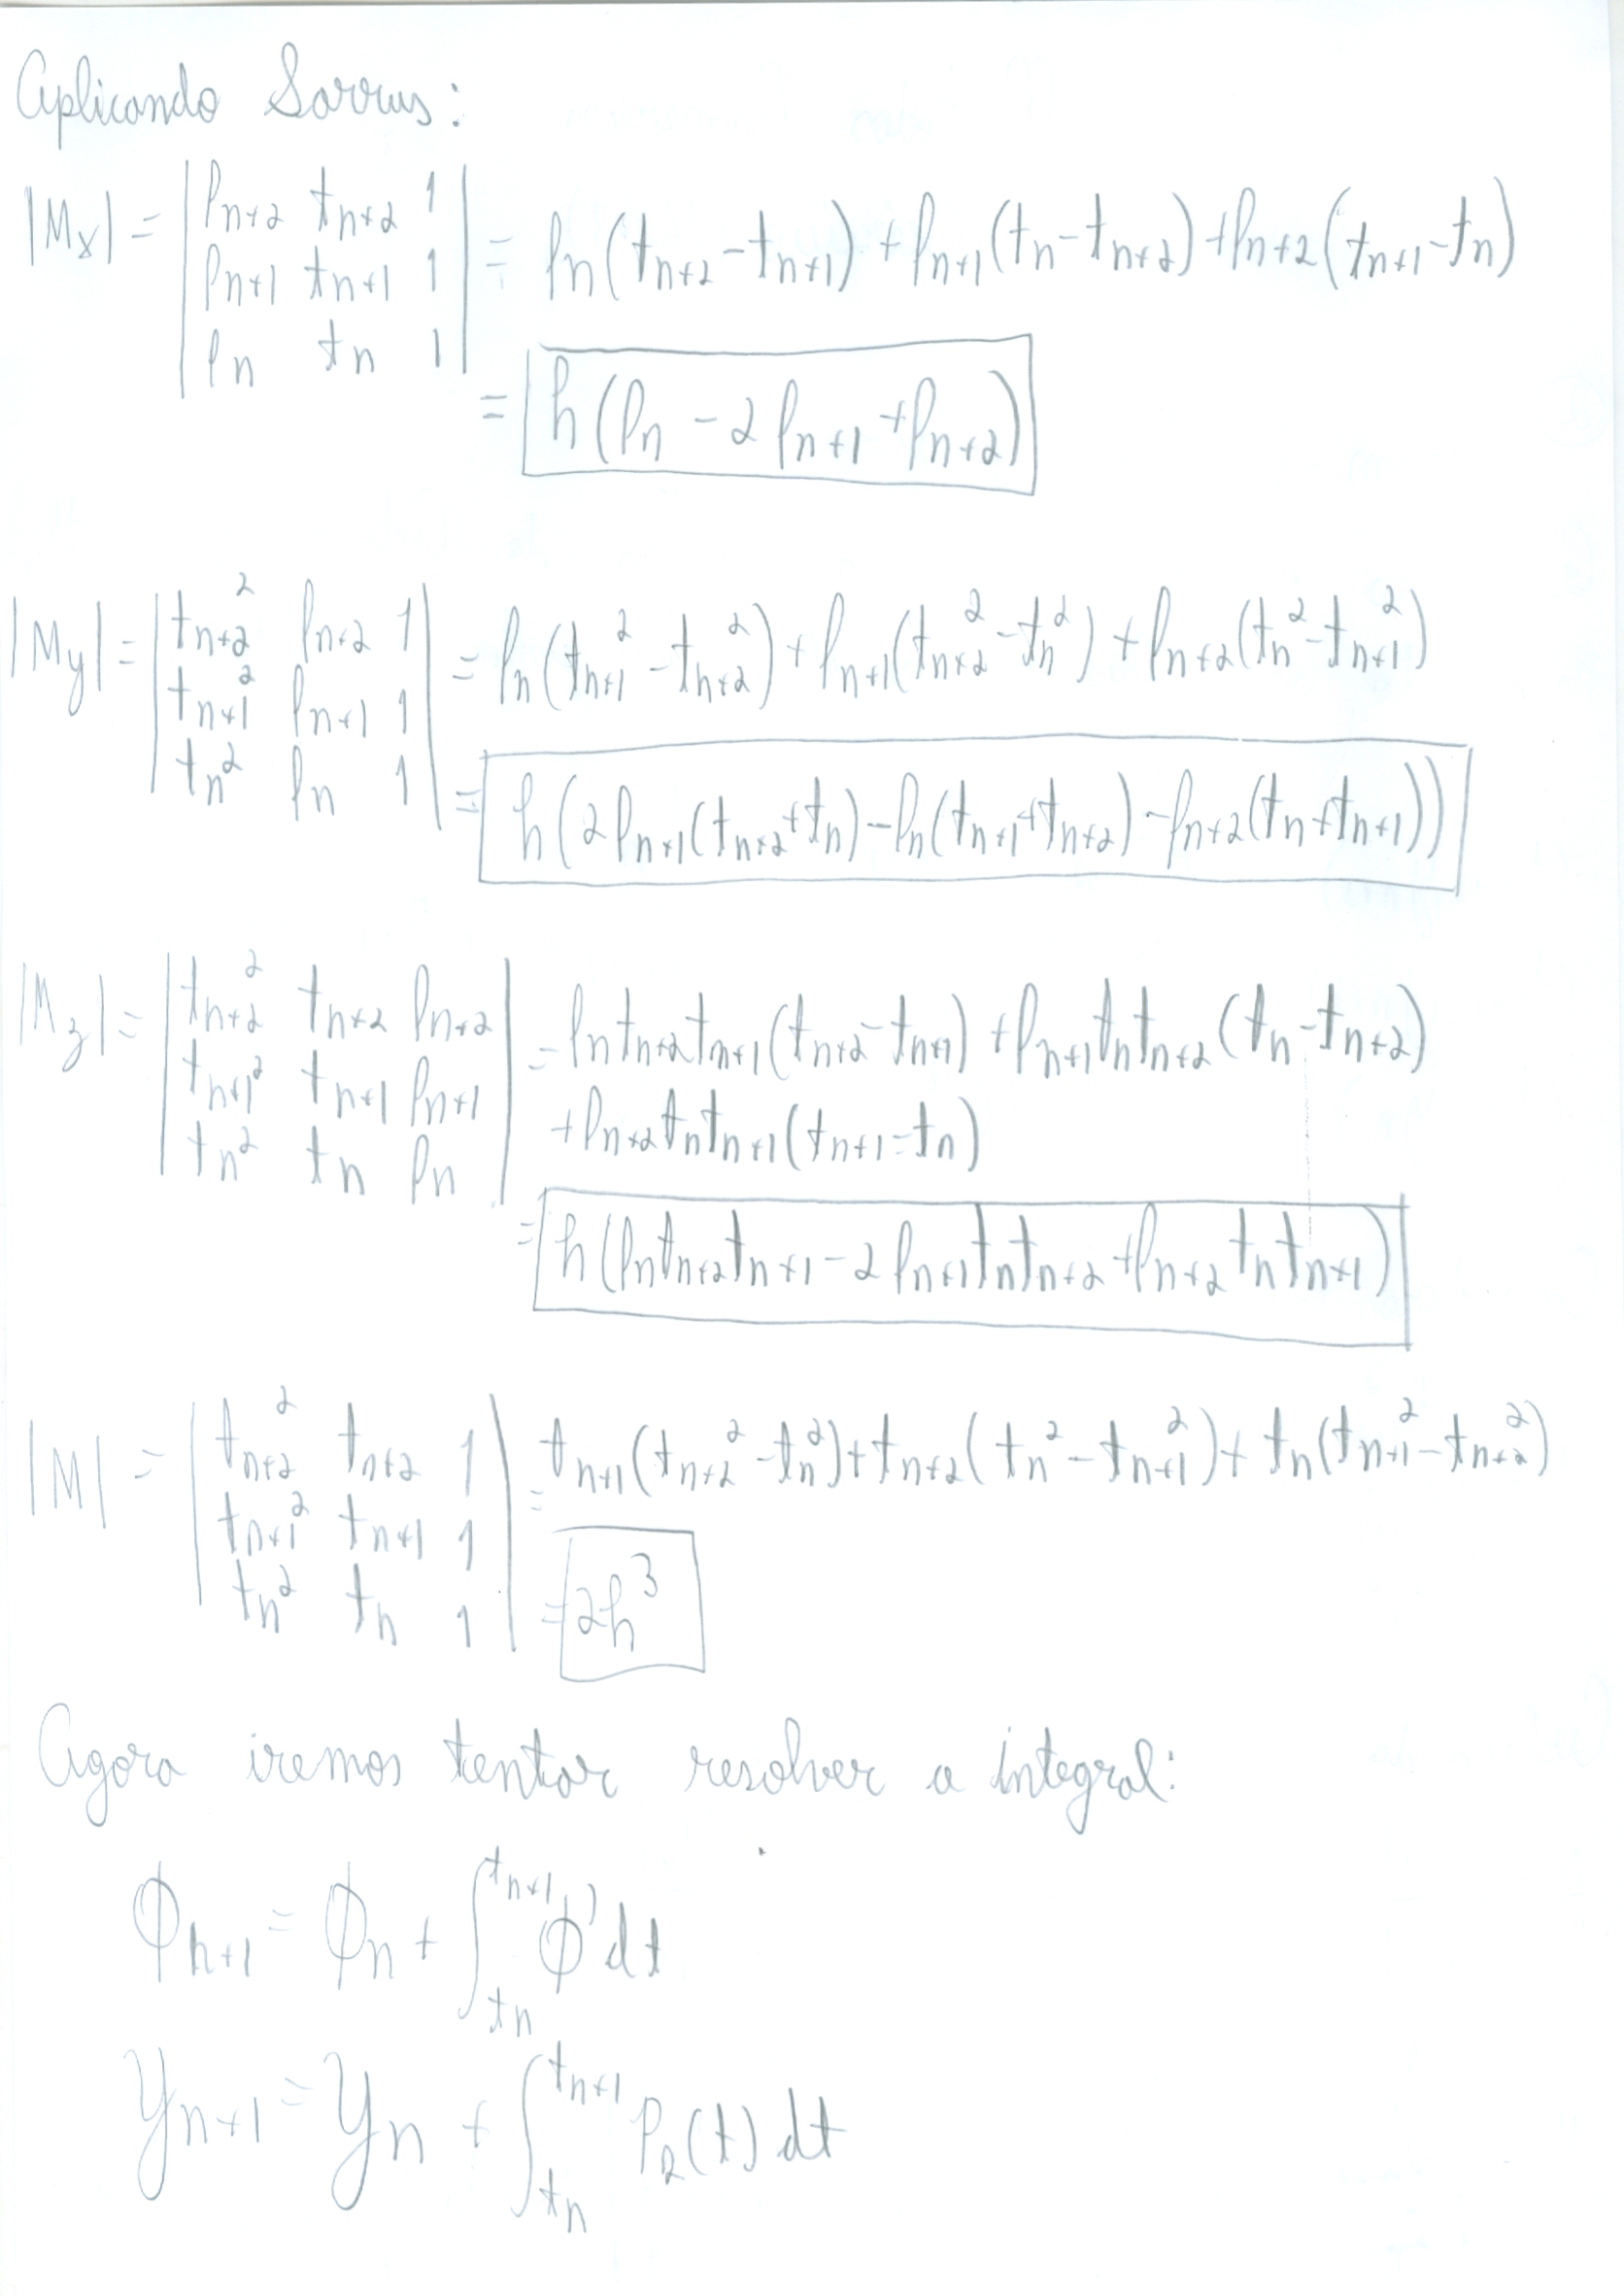 Aplicando Sarrus:
|Mx| = | fn+2 tn+2 1 | = fn(tn+2 - tn+1) + fn+1(tn - tn+2) + fn+2(tn+1 - tn)
| fn+1 tn+1 1 |
| fn tn 1 |
= h(fn - 2fn+1 + fn+2)
|My| = | tn+2² fn+2 1 | = fn(tn+1² - tn+2²) + fn+1(tn+2² - tn²) + fn+2(tn² - tn+1²)
| tn+1² fn+1 1 |
| tn² fn 1 |
= h(2fn+1(tn+2 + tn) - fn(tn+1 + tn+2) - fn+2(tn + tn+1))
|Mz| = | tn+2² tn+2 fn+2 | = fn tn+2 tn+1 (tn+2 - tn+1) + fn+1 tn tn+2 (tn - tn+2)
| tn+1² tn+1 fn+1 | + fn+2 tn tn+1 (tn+1 - tn)
| tn² tn fn |
= h(fn tn+2 tn+1 - 2 fn+1 tn tn+2 + fn+2 tn tn+1)
|M| = | tn+2² tn+2 1 | = tn+1(tn+2² - tn²) + tn+2(tn² - tn+1²) + tn(tn+1² - tn+2²)
| tn+1² tn+1 1 |
| tn² tn 1 |
= 2h³
Agora iremos tentar resolver a integral:
ϕn+1 = ϕn + ∫tn^tn+1 ϕ' dt
yn+1 = yn + ∫tn^tn+1 P2(t) dt